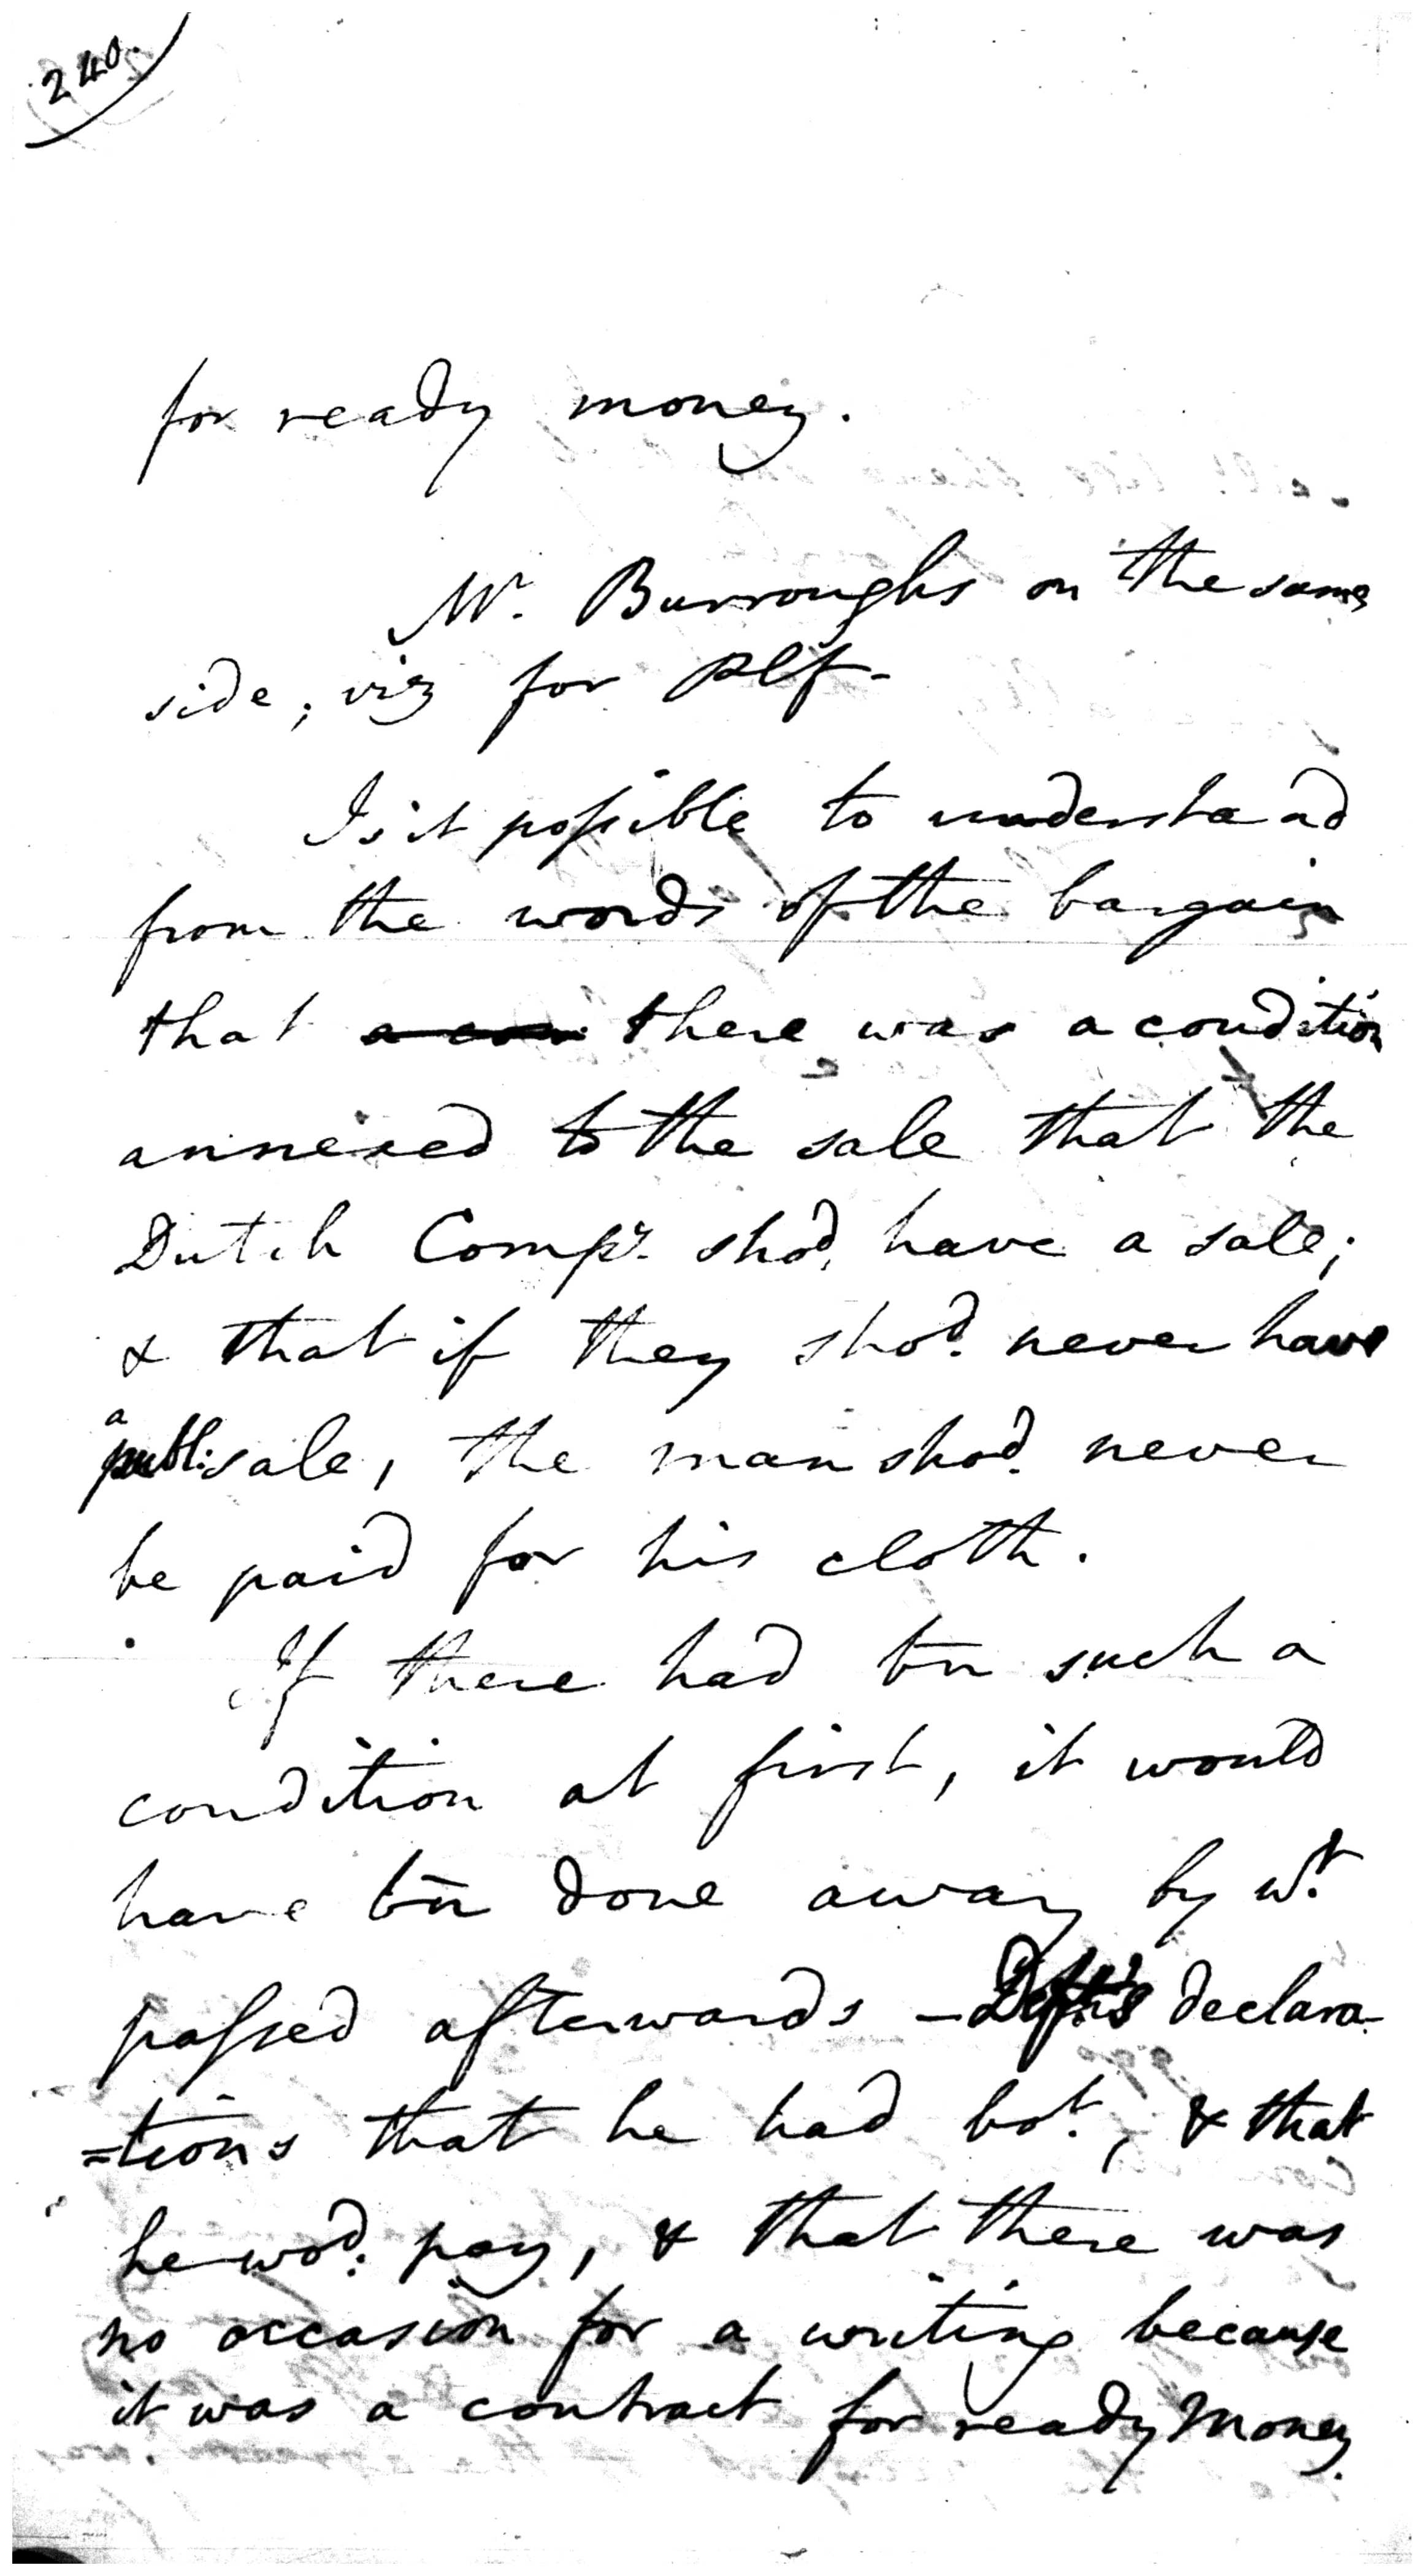 240.
for ready money.
Mr. Burroughs on the same
side, viz for Plf-
Is it possible to understand
from the words of the bargain
that a con there was a condition
annexed to the sale that the
Dutch Compy. shod. have a sale;
& that if they shod. never have
a
publ: sale, the man shod. never
be paid for his cloth.
If there had bn such a
condition at first, it would
have bn done away by wt.
passed afterwards - Deft's declara-
=tions that he had bot., & that
he wod. pay, & that there was
no occasion for a writing because
it was a contract for ready Money.